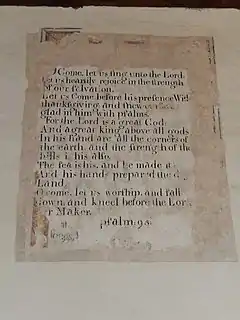 O Come, let us sing unto the Lord
Let us heartily rejoice in the strength
of our salvation.
Let us Come before his presence With
thanksgiving, and shew
glad in him with psalms.
For the Lord is a great God:
And a great king above all gods
In his hand are all the corners of
the earth, and the strength of the
hills is his also.
The sea is his, and he made it
And his hands prepared the
Land.
O come, let us worship, and fall
down, and kneel before the Lor
r Maker.
psalm 95